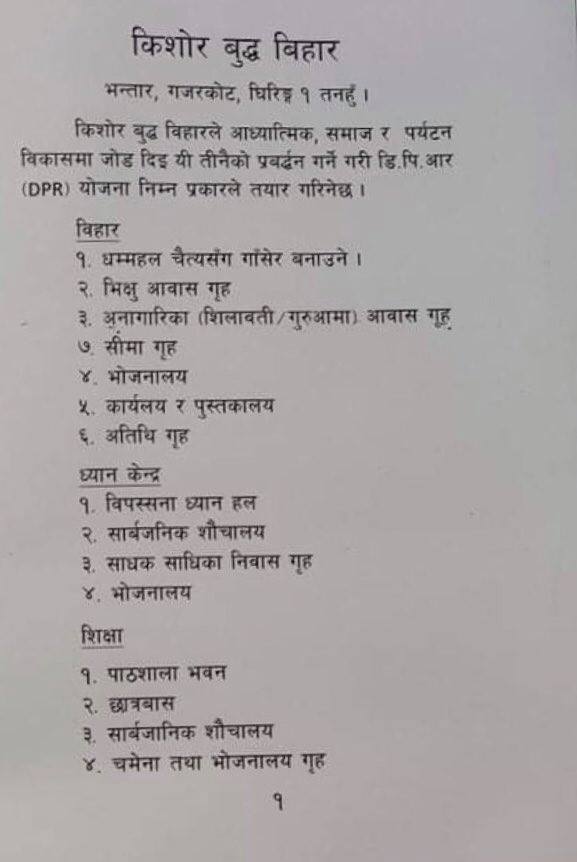 किशोर बुद्ध विहार
भन्तार, गजरकोट, घिरिङ्ग १ तनहुँ ।
किशोर बुद्ध विहारले आध्यात्मिक, समाज र पर्यटन
विकासमा जोड दिइ यी तीनैको प्रबर्द्धन गर्ने गरी डि.पि.आर
(DPR) योजना निम्न प्रकारले तयार गरिनेछ ।
विहार
१. धम्महल चैत्यसँग गाँसेर बनाउने ।
२. भिक्षु आवास गृह
३. अनागारिका (शिलावती/गुरुआमा) आवास गृह
७. सीमा गृह
४. भोजनालय
५. कार्यलय र पुस्तकालय
६. अतिथि गृह
ध्यान केन्द्र
१. विपस्सना ध्यान हल
२. सार्बजनिक शौचालय
३. साधक साधिका निवास गृह
४. भोजनालय
शिक्षा
१. पाठशाला भवन
२. छात्रबास
३. सार्बजानिक शौचालय
४. चमेना तथा भोजनालय गृह
१